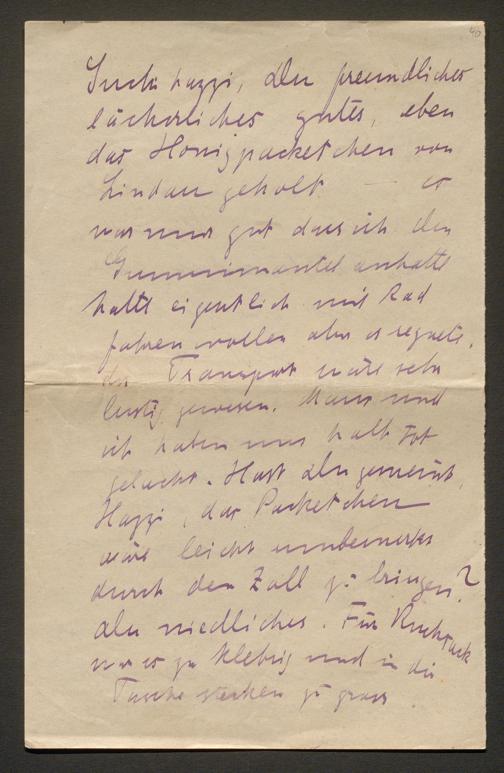 40
Suchi hazzi, du freundliches
lächerliches gutes, eben
das Honigpacketchen von
Lindau geholt — es
war nur gut dass ich den
Gummimantel anhatte
hatte eigentlich mit Rad
fahren wollen aber es regnete.
der Transport wäre sehr
lustig gewesen. Maus und
ich haben uns halb tot
gelacht. Hast du gemeint
Hazzi, das Packetchen
wäre leicht unbemerkt
durch den Zoll zu bringen?
du niedliches. Für Rucksack
war es zu klebrig und in die
Tasche stecken zu gross